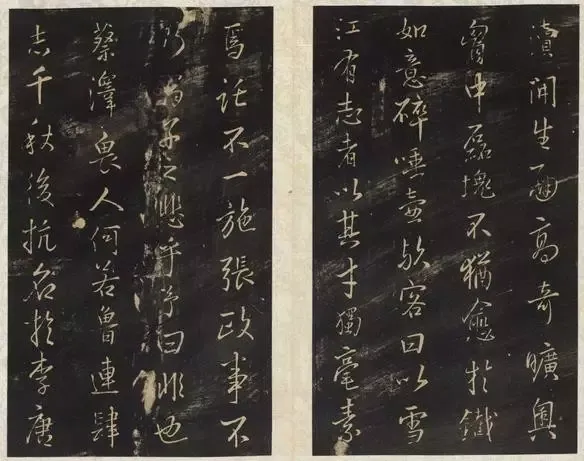 開生面高奇曠奧
胷中磊塊不猶愈於鐵
如意碎唾壺歟客曰以雪
江有志者以其才獨毫素
焉託不一施張政事不
子之悲乎予曰非也
蔡澤畏人何若魯連肆
志千秋後抗名於李唐